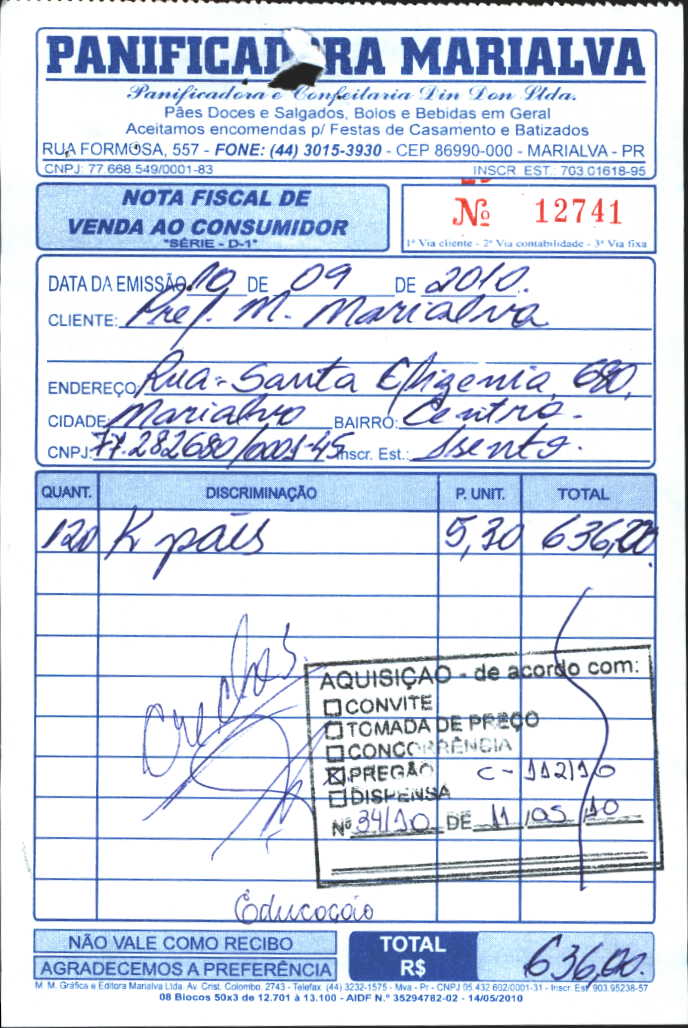 PANIFICADORA MARIALVA
Panificadora e Confeitaria Din Don Ltda.
Pães Doces e Salgados, Bolos e Bebidas em Geral
Aceitamos encomendas p/ Festas de Casamento e Batizados
RUA FORMOSA, 557 - FONE: (44) 3015-3930 - CEP 86990-000 - MARIALVA - PR
CNPJ: 77.668.549/0001-83 INSCR. EST.: 703.01618-95
NOTA FISCAL DE
VENDA AO CONSUMIDOR
"SÉRIE - D-1"
Nº 12741
1ª Via cliente - 2ª Via contabilidade - 3ª Via fixa
DATA DA EMISSÃO 10 DE 09 DE 2010.
CLIENTE: Pref. M. Marialva
ENDEREÇO: Rua - Santa Efigenia, 680,
CIDADE: Marialva BAIRRO: Centro -
CNPJ: 77.282680/0001-45 Inscr. Est.: Isento.
QUANT. DISCRIMINAÇÃO P. UNIT. TOTAL
120 K pães 5,30 636,00.
Creches
AQUISIÇÃO - de acordo com:
CONVITE
TOMADA DE PREÇO
CONCORRÊNCIA
PREGÃO C - 112/10
DISPENSA
Nº 34/10 DE 11/05/10
Educação
NÃO VALE COMO RECIBO
AGRADECEMOS A PREFERÊNCIA
TOTAL
R$ 636,00.
M. M. Gráfica e Editora Marialva Ltda. Av. Crist. Colombo, 2743 - Telefax (44) 3232-1575 - Mva - Pr - CNPJ 05.432.692/0001-31 - Inscr. Est. 903.95238-57
08 Blocos 50x3 de 12.701 à 13.100 - AIDF N.º 35294782-02 - 14/05/2010